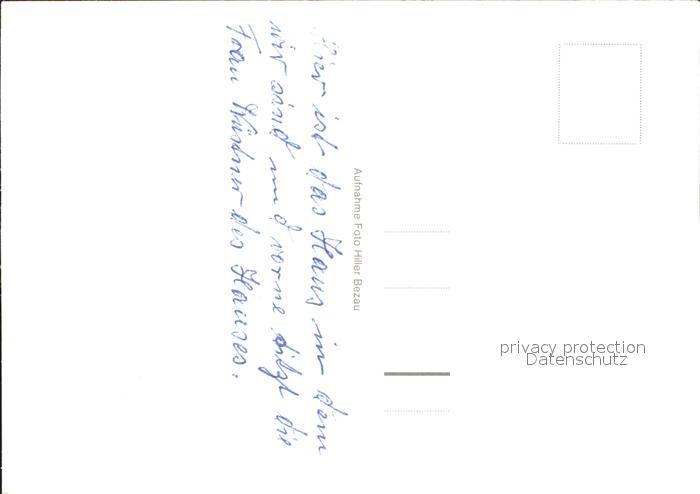 Hier ist das Haus in dem
wir sind und vorne sitzt die
Frau des Hauses.
Aufnahme Foto Hiller Bezau
privacy protection
Datenschutz